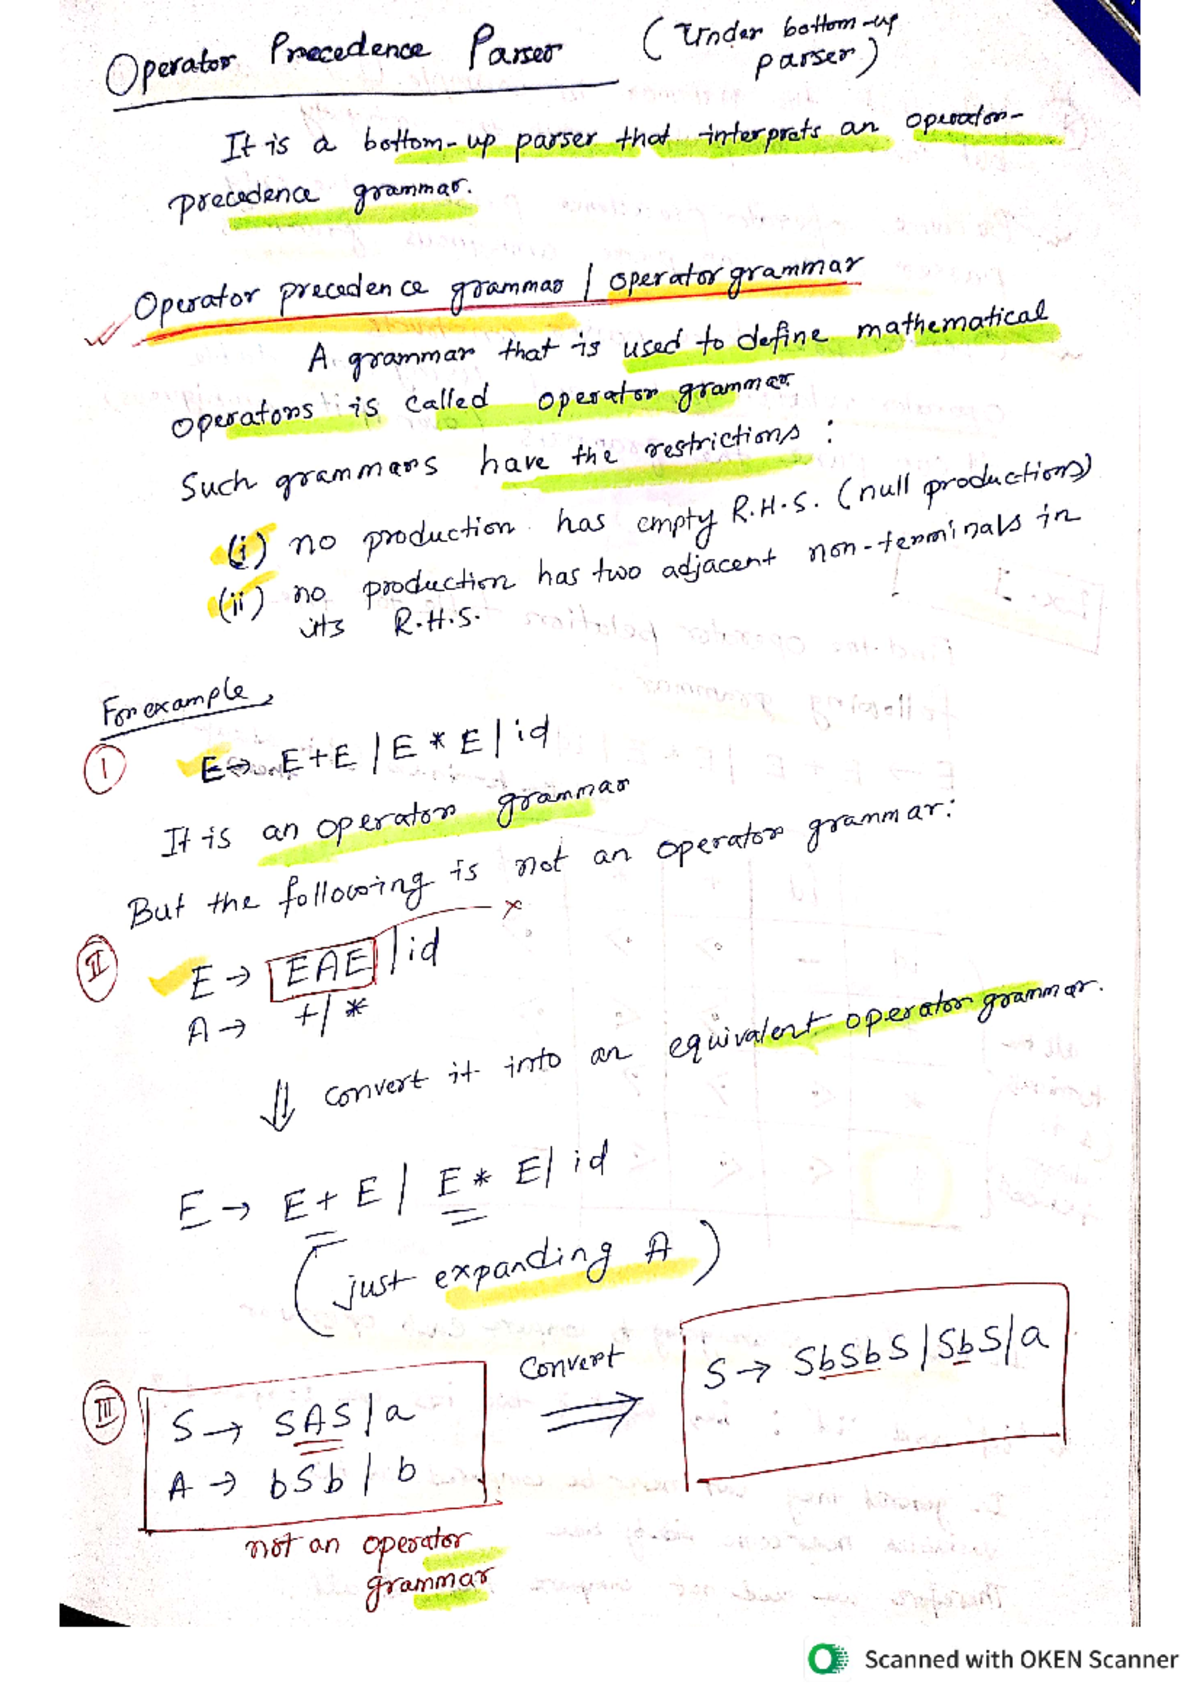 Operator Precedence Parser (Under bottom-up
parser)
It is a bottom-up parser that interprets an operator-
precedence grammar.
Operator precedence grammar / operator grammar
A grammar that is used to define mathematical
operators is called operator grammar.
Such grammars have the restrictions :
(i) no production has empty R.H.S. (null productions)
(ii) no production has two adjacent non-terminals in
its R.H.S.
For example,
I E → E+E | E * E | id
It is an operator grammar
But the following is not an operator grammar:
x
II E → EAE | id
A → + | *
⇓ convert it into an equivalent operator grammar.
E → E + E | E * E | id
(just expanding A)
III S → SAS | a
A → bSb | b
Convert
⇒
S → SbSbS | SbS | a
not an operator
grammar
Scanned with OKEN Scanner